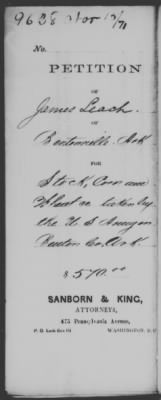 9628 Nov 17/71
No.
PETITION
OF
James Leach
OF
Bentonville, Ark
FOR
Stock, Corn and
taken by
the U S Army in
Benton Co. Ark.
$570.00
SANBORN & KING,
ATTORNEYS,
475 Pennsylvania Avenue,
P. O. Lock Box
WASHINGTON, D.C.